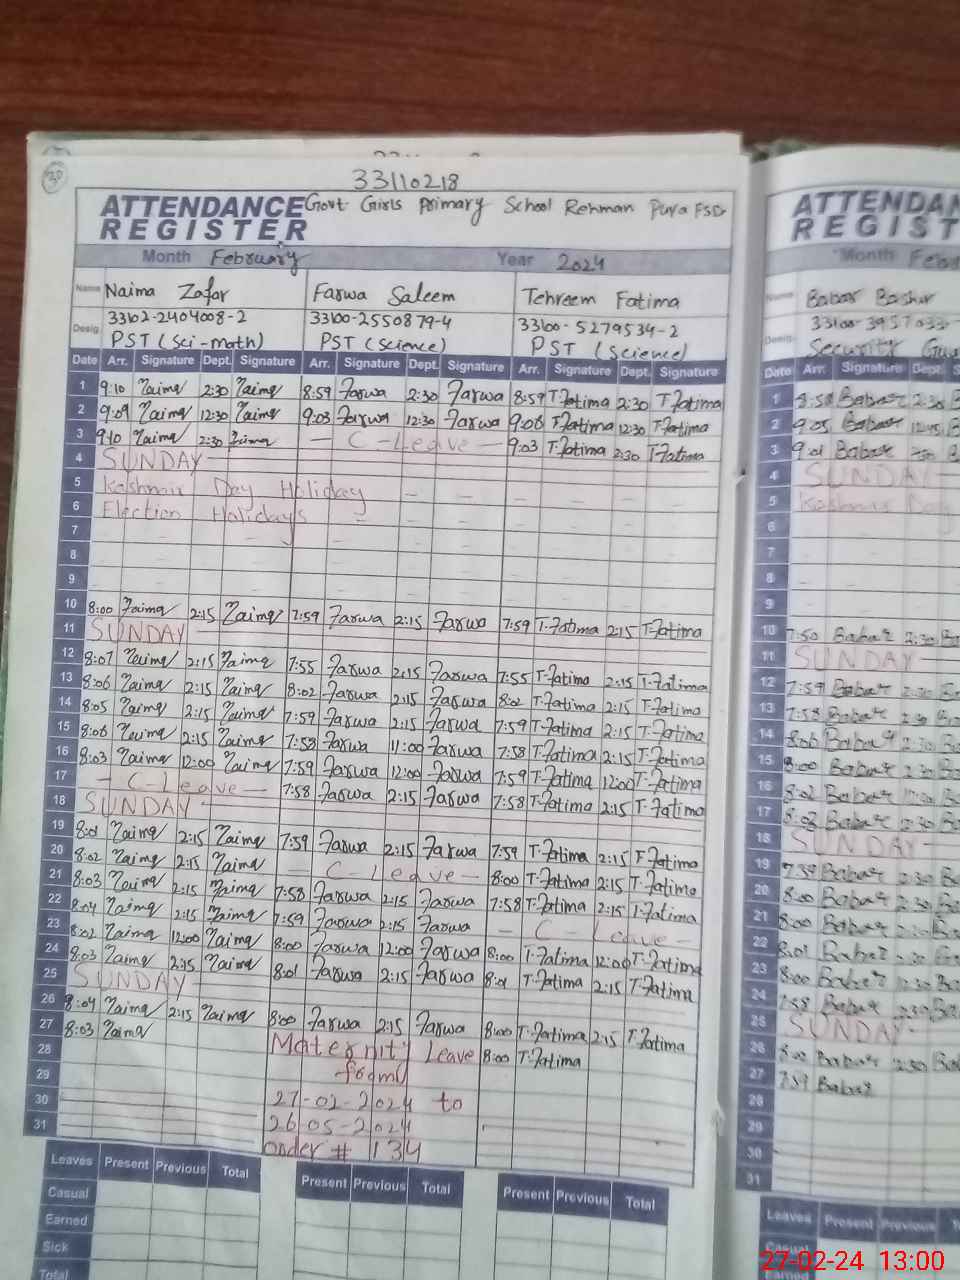 30
33110218
ATTENDANCE REGISTER Govt Girls Primary School Rehman Pura FSD
Month February Year 2024
Name Naima Zafar Farwa Saleem Tehreem Fatima
Desig. 33102-2404008-2 33100-2550879-4 33100-5279534-2
PST (Sci-math) PST (Science) PST (Science)
Date Arr. Signature Dept. Signature Arr. Signature Dept. Signature Arr. Signature Dept. Signature
1 9:10 Naima 2:30 Naima 8:59 Farwa 2:30 Farwa 8:59 T.Fatima 2:30 T.Fatima
2 9:09 Naima 12:30 Naima 9:03 Farwa 12:30 Farwa 9:06 T.Fatima 12:30 T.Fatima
3 9:10 Naima 2:30 Naima - C-Leave - 9:03 T.Fatima 2:30 T.Fatima
4 SUNDAY
5 Kashmir Day Holiday
6 Election Holidays
7
8
9
10 8:00 Naima 2:15 Naima 7:59 Farwa 2:15 Farwa 7:59 T.Fatima 2:15 T.Fatima
11 SUNDAY
12 8:07 Naima 2:15 Naima 7:55 Farwa 2:15 Farwa 7:55 T.Fatima 2:15 T.Fatima
13 8:06 Naima 2:15 Naima 8:02 Farwa 2:15 Farwa 8:02 T.Fatima 2:15 T.Fatima
14 8:05 Naima 2:15 Naima 7:59 Farwa 2:15 Farwa 7:59 T.Fatima 2:15 T.Fatima
15 8:06 Naima 2:15 Naima 7:58 Farwa 11:00 Farwa 7:58 T.Fatima 2:15 T.Fatima
16 8:03 Naima 12:00 Naima 7:59 Farwa 12:00 Farwa 7:59 T.Fatima 12:00 T.Fatima
17 - C-Leave - 7:58 Farwa 2:15 Farwa 7:58 T.Fatima 2:15 T.Fatima
18 SUNDAY
19 8:01 Naima 2:15 Naima 7:59 Farwa 2:15 Farwa 7:59 T.Fatima 2:15 T.Fatima
20 8:02 Naima 2:15 Naima - C-Leave - 8:00 T.Fatima 2:15 T.Fatima
21 8:03 Naima 2:15 Naima 7:58 Farwa 2:15 Farwa 7:58 T.Fatima 2:15 T.Fatima
22 8:04 Naima 2:15 Naima 7:59 Farwa 2:15 Farwa - C-Leave -
23 8:02 Naima 12:00 Naima 8:00 Farwa 12:00 Farwa 8:00 T.Fatima 12:00 T.Fatima
24 8:03 Naima 2:15 Naima 8:01 Farwa 2:15 Farwa 8:01 T.Fatima 2:15 T.Fatima
25 SUNDAY
26 8:04 Naima 2:15 Naima 8:00 Farwa 2:15 Farwa 8:00 T.Fatima 2:15 T.Fatima
27 8:03 Naima Maternity Leave 8:00 T.Fatima
28 from
29 27-02-2024 to
30 26-05-2024
31 order # 134
Leaves Present Previous Total Present Previous Total Present Previous Total
Casual
Earned
Sick
Total
ATTENDAN
REGIST
Month Feb
Name Babar Bashir
33100-3957033-
Desig. Security Gu
Date Arr. Signature Dept. S
1 8:58 Babar 2:30
2 9:05 Babar 12:45
3 9:01 Babar
4 SUNDAY
5 Kashmir Day
6
7
8
9
10 7:50 Babar 2:30
11 SUNDAY
12 7:59 Babar
13 7:58 Babar 2:30
14 8:06 Babar 2:30
15 8:00 Babar 2:30
16 8:02 Babar
17 8:02 Babar 2:30
18 SUNDAY
19 7:59 Babar 2:30
20 8:00 Babar 2:30
21 8:00 Babar
22 8:01 Babar
23 8:00 Babar 12:30
24 7:58 Babar 2:30
25 SUNDAY
26 8:02 Babar 2:30
27 7:59 Babar
28
29
30
31
Leaves Present Previous
Casual
Earned
27-02-24 13:00